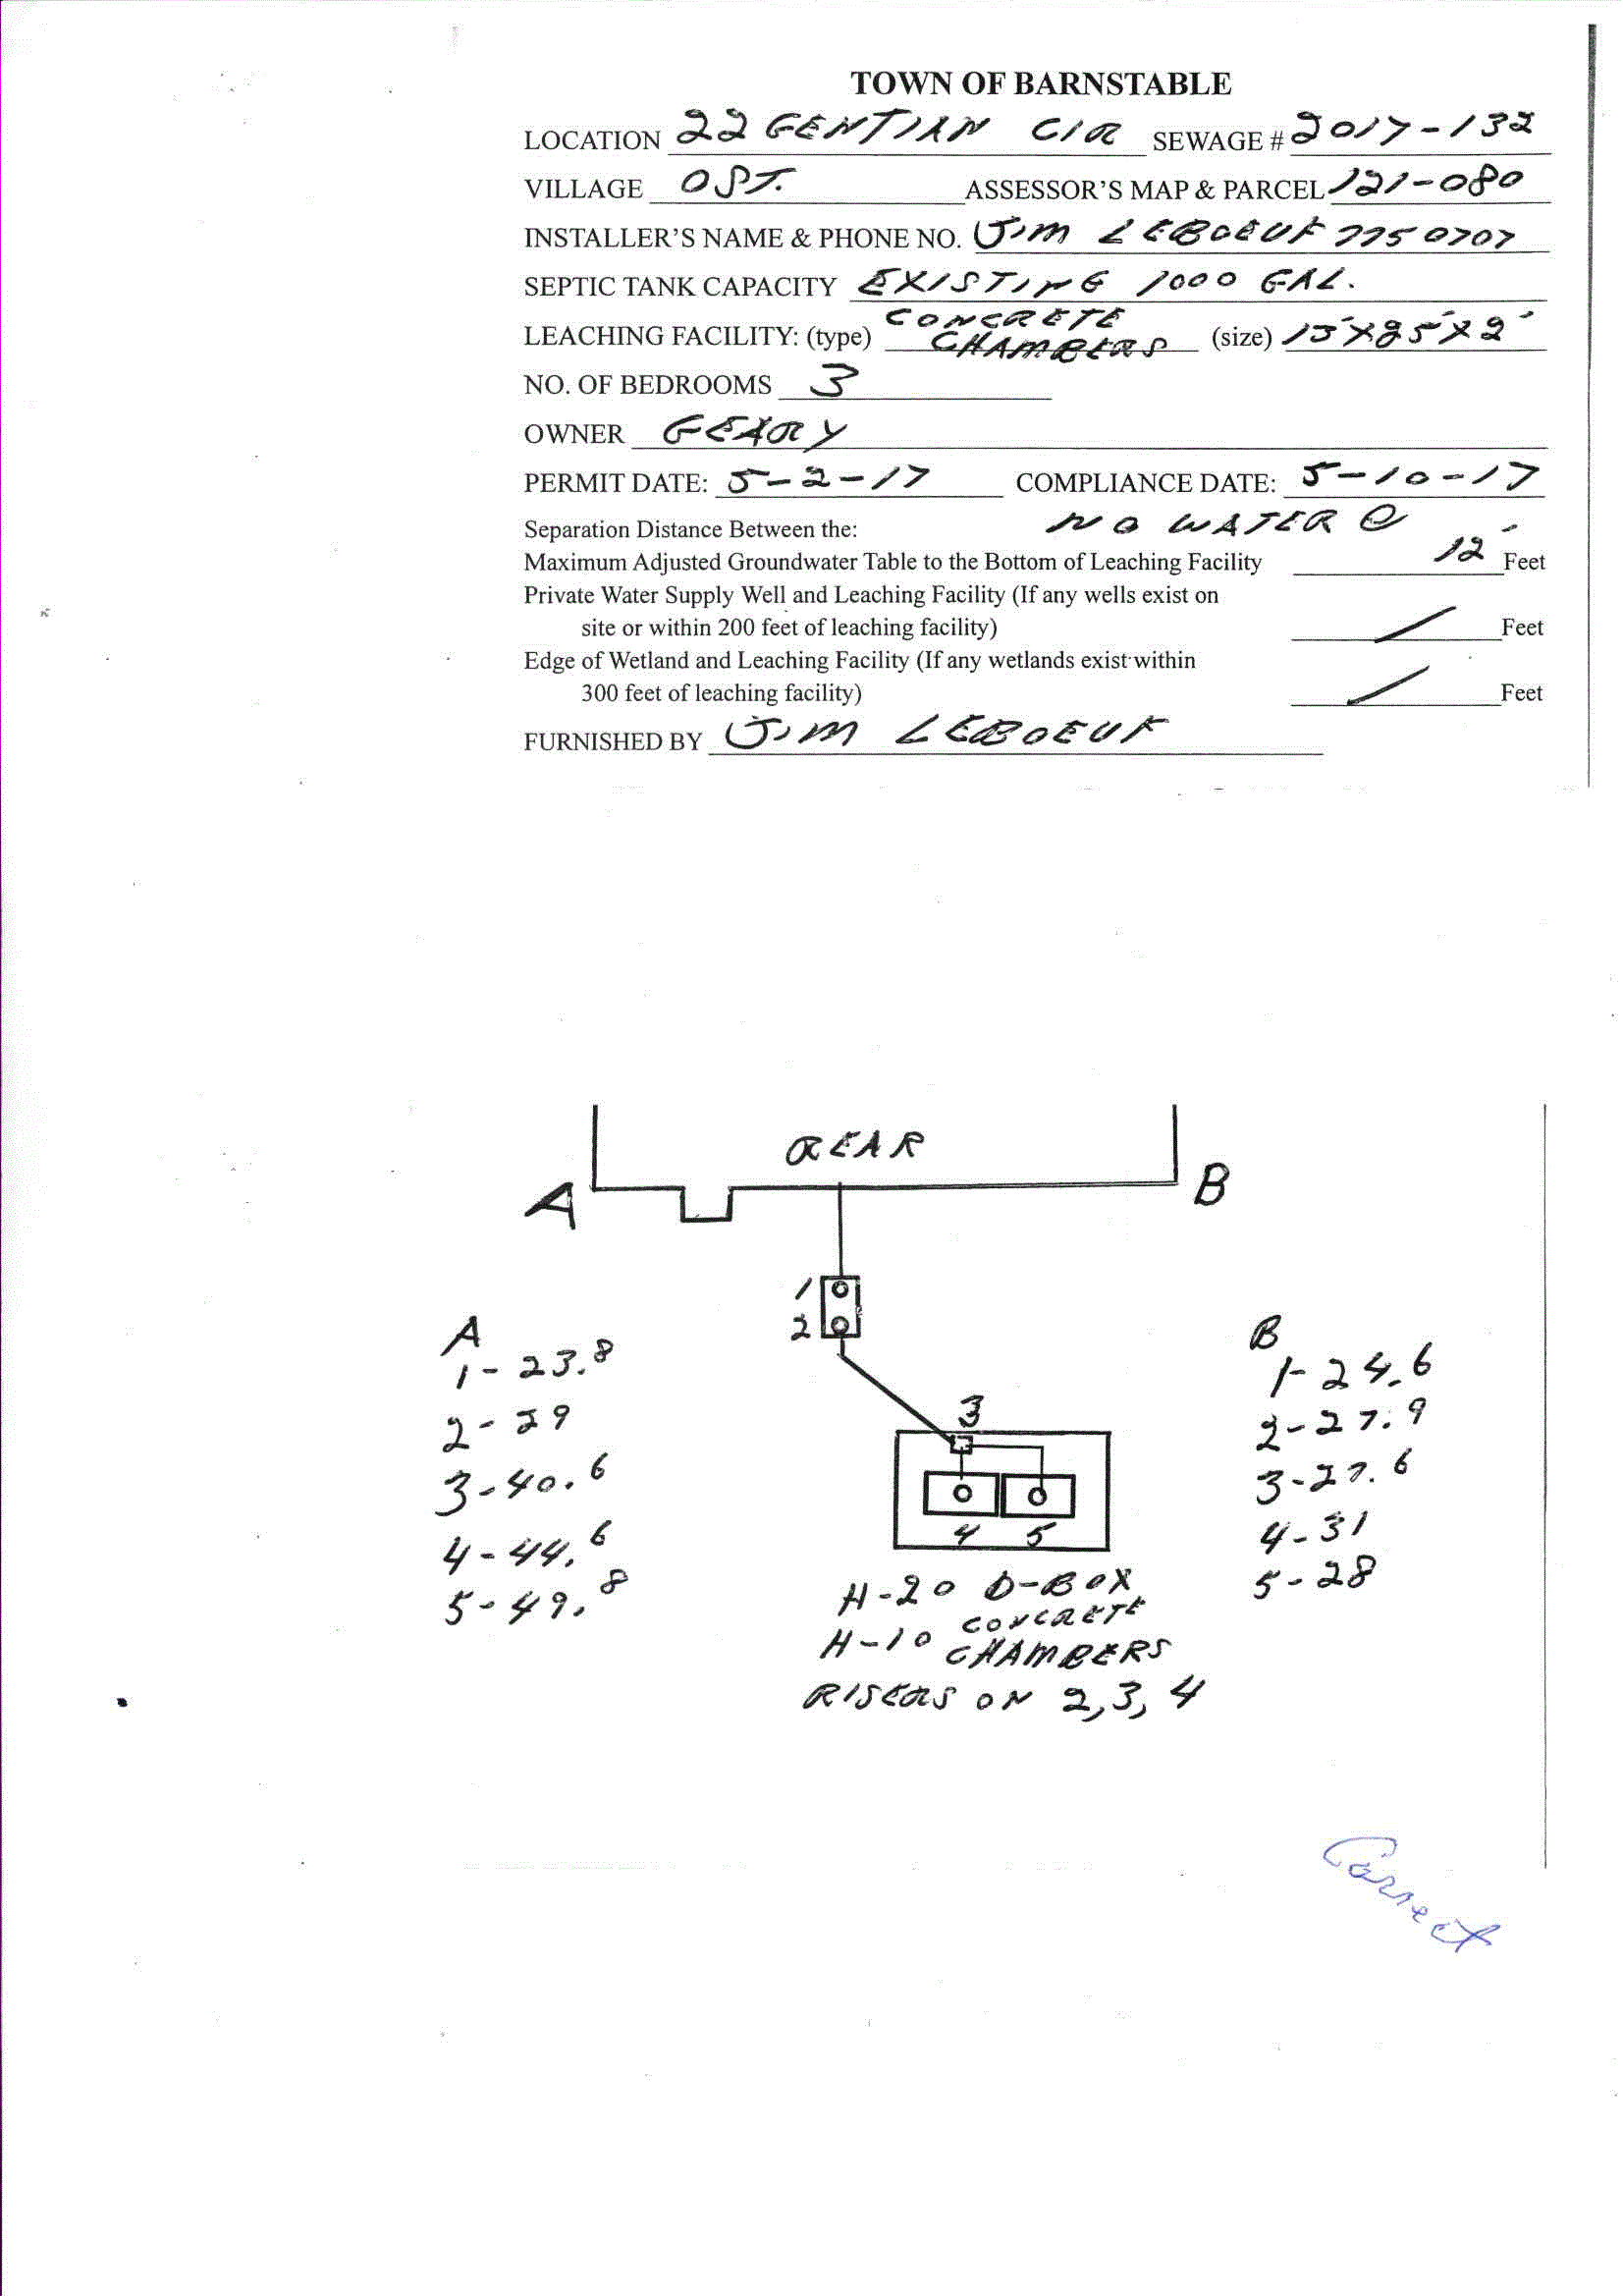 TOWN OF BARNSTABLE
LOCATION 22 GENTIAN CIR SEWAGE # 2017-132
VILLAGE OST. ASSESSOR'S MAP & PARCEL 121-080
INSTALLER'S NAME & PHONE NO. JIM LEBOEUF 775 0707
SEPTIC TANK CAPACITY EXISTING 1000 GAL.
LEACHING FACILITY: (type) CONCRETE CHAMBERS (size) 13'X25'X2'
NO. OF BEDROOMS 3
OWNER GEARY
PERMIT DATE: 5-2-17 COMPLIANCE DATE: 5-10-17
Separation Distance Between the: NO WATER @
Maximum Adjusted Groundwater Table to the Bottom of Leaching Facility 12' Feet
Private Water Supply Well and Leaching Facility (If any wells exist on
site or within 200 feet of leaching facility) / Feet
Edge of Wetland and Leaching Facility (If any wetlands exist within
300 feet of leaching facility) / Feet
FURNISHED BY JIM LEBOEUF
REAR
A
B
1
2
3
4 5
A
1-23.8
2-29
3-40.6
4-44.6
5-49.8
B
1-24.6
2-27.9
3-27.6
4-31
5-28
H-20 D-BOX
H-10 CONCRETE
CHAMBERS
RISERS ON 2,3,4
Correct